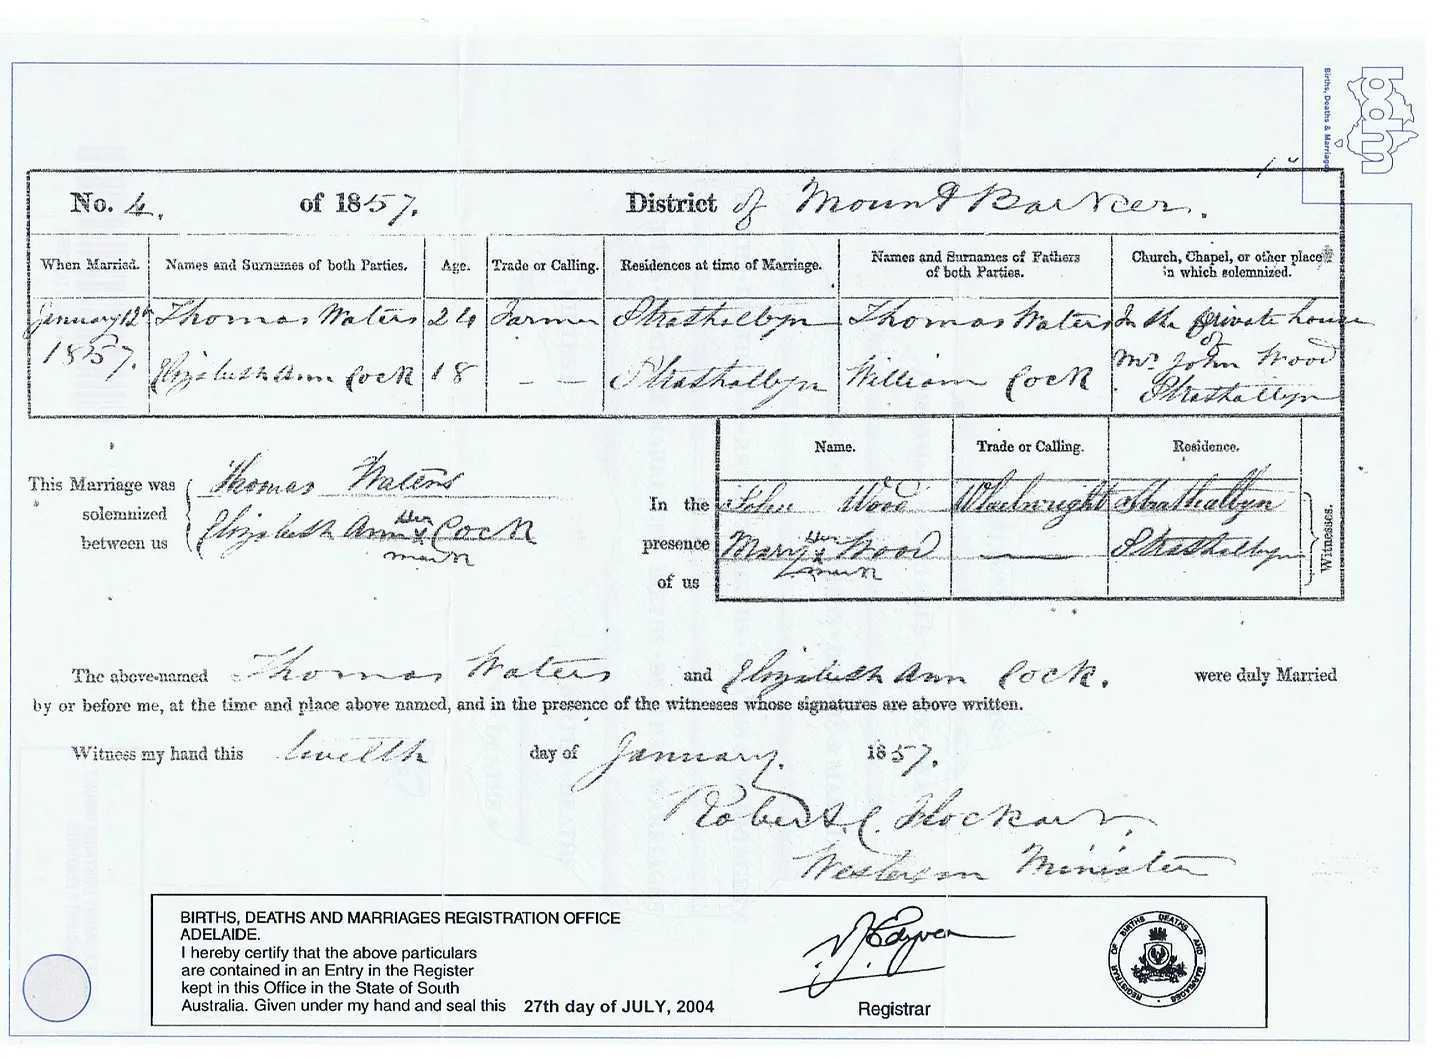 bdm
Births, Deaths & Marriages
No. 4. of 1857. District of Mount Barker.
When Married. Names and Surnames of both Parties. Age. Trade or Calling. Residences at time of Marriage. Names and Surnames of Fathers of both Parties. Church, Chapel, or other place in which solemnized.
January 12th 1857. Thomas Waters 24 Farmer Strathalbyn Thomas Waters In the private house of
Elizabeth Ann Cock 18 — — Strathalbyn William Cock Mr. John Wood
Strathalbyn
Name. Trade or Calling. Residence.
This Marriage was solemnized between us
Thomas Waters
Elizabeth Ann Her x mark Cock
In the presence of us
John Wood Wheelwright Strathalbyn
Mary Her x mark Wood — Strathalbyn
Witnesses.
The above-named Thomas Waters and Elizabeth Ann Cock. were duly Married
by or before me, at the time and place above named, and in the presence of the witnesses whose signatures are above written.
Witness my hand this twelfth day of January. 1857.
Robert C. Flockart,
Wesleyan Minister
BIRTHS, DEATHS AND MARRIAGES REGISTRATION OFFICE
ADELAIDE.
I hereby certify that the above particulars
are contained in an Entry in the Register
kept in this Office in the State of South
Australia. Given under my hand and seal this 27th day of JULY, 2004
Registrar
REGISTRAR OF BIRTHS DEATHS AND MARRIAGES